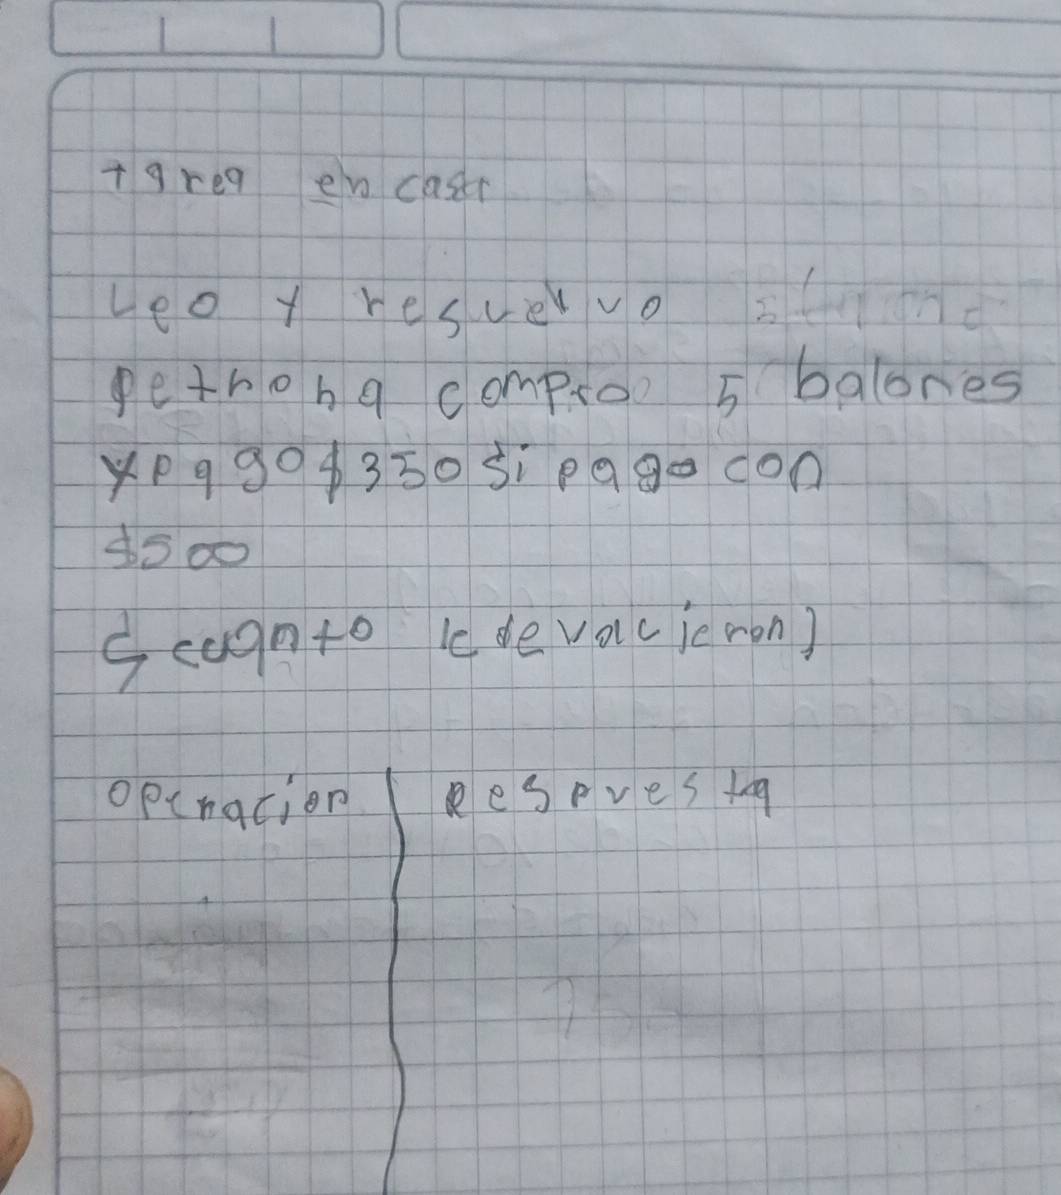 tarea en casa
Leo y resuelvo
petrona compro 5 balones
y pago $350 si pago con
$500
¿cuanto le devolcieron?
operacion | Respuesta